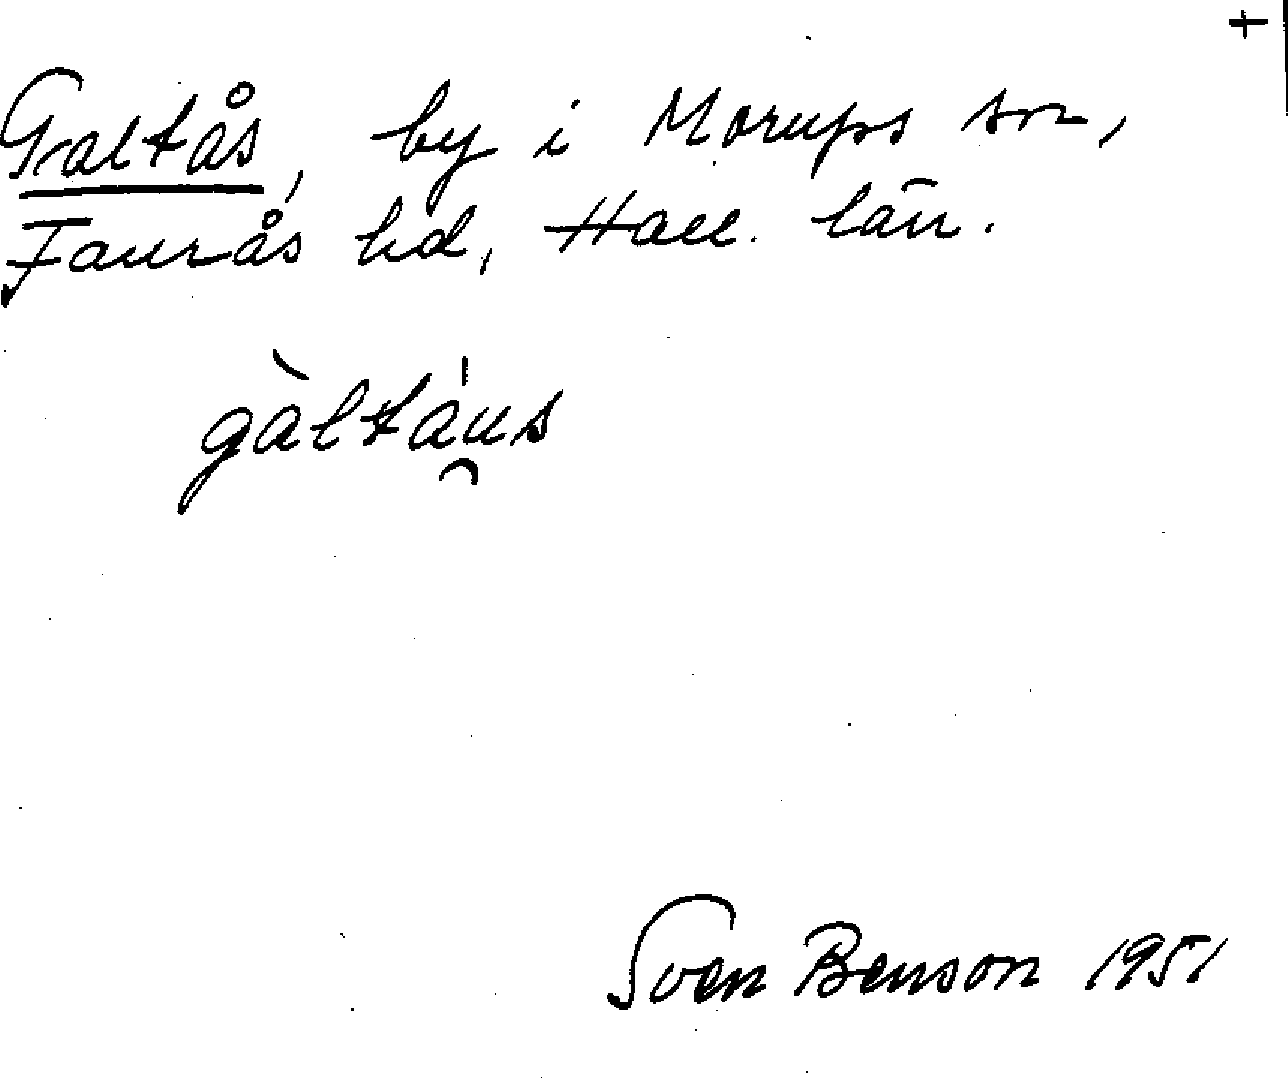 +
Galtås, by i Morups sn,
Faurås hd, Hall. län.
gàltáu̯s
Sven Benson 1951